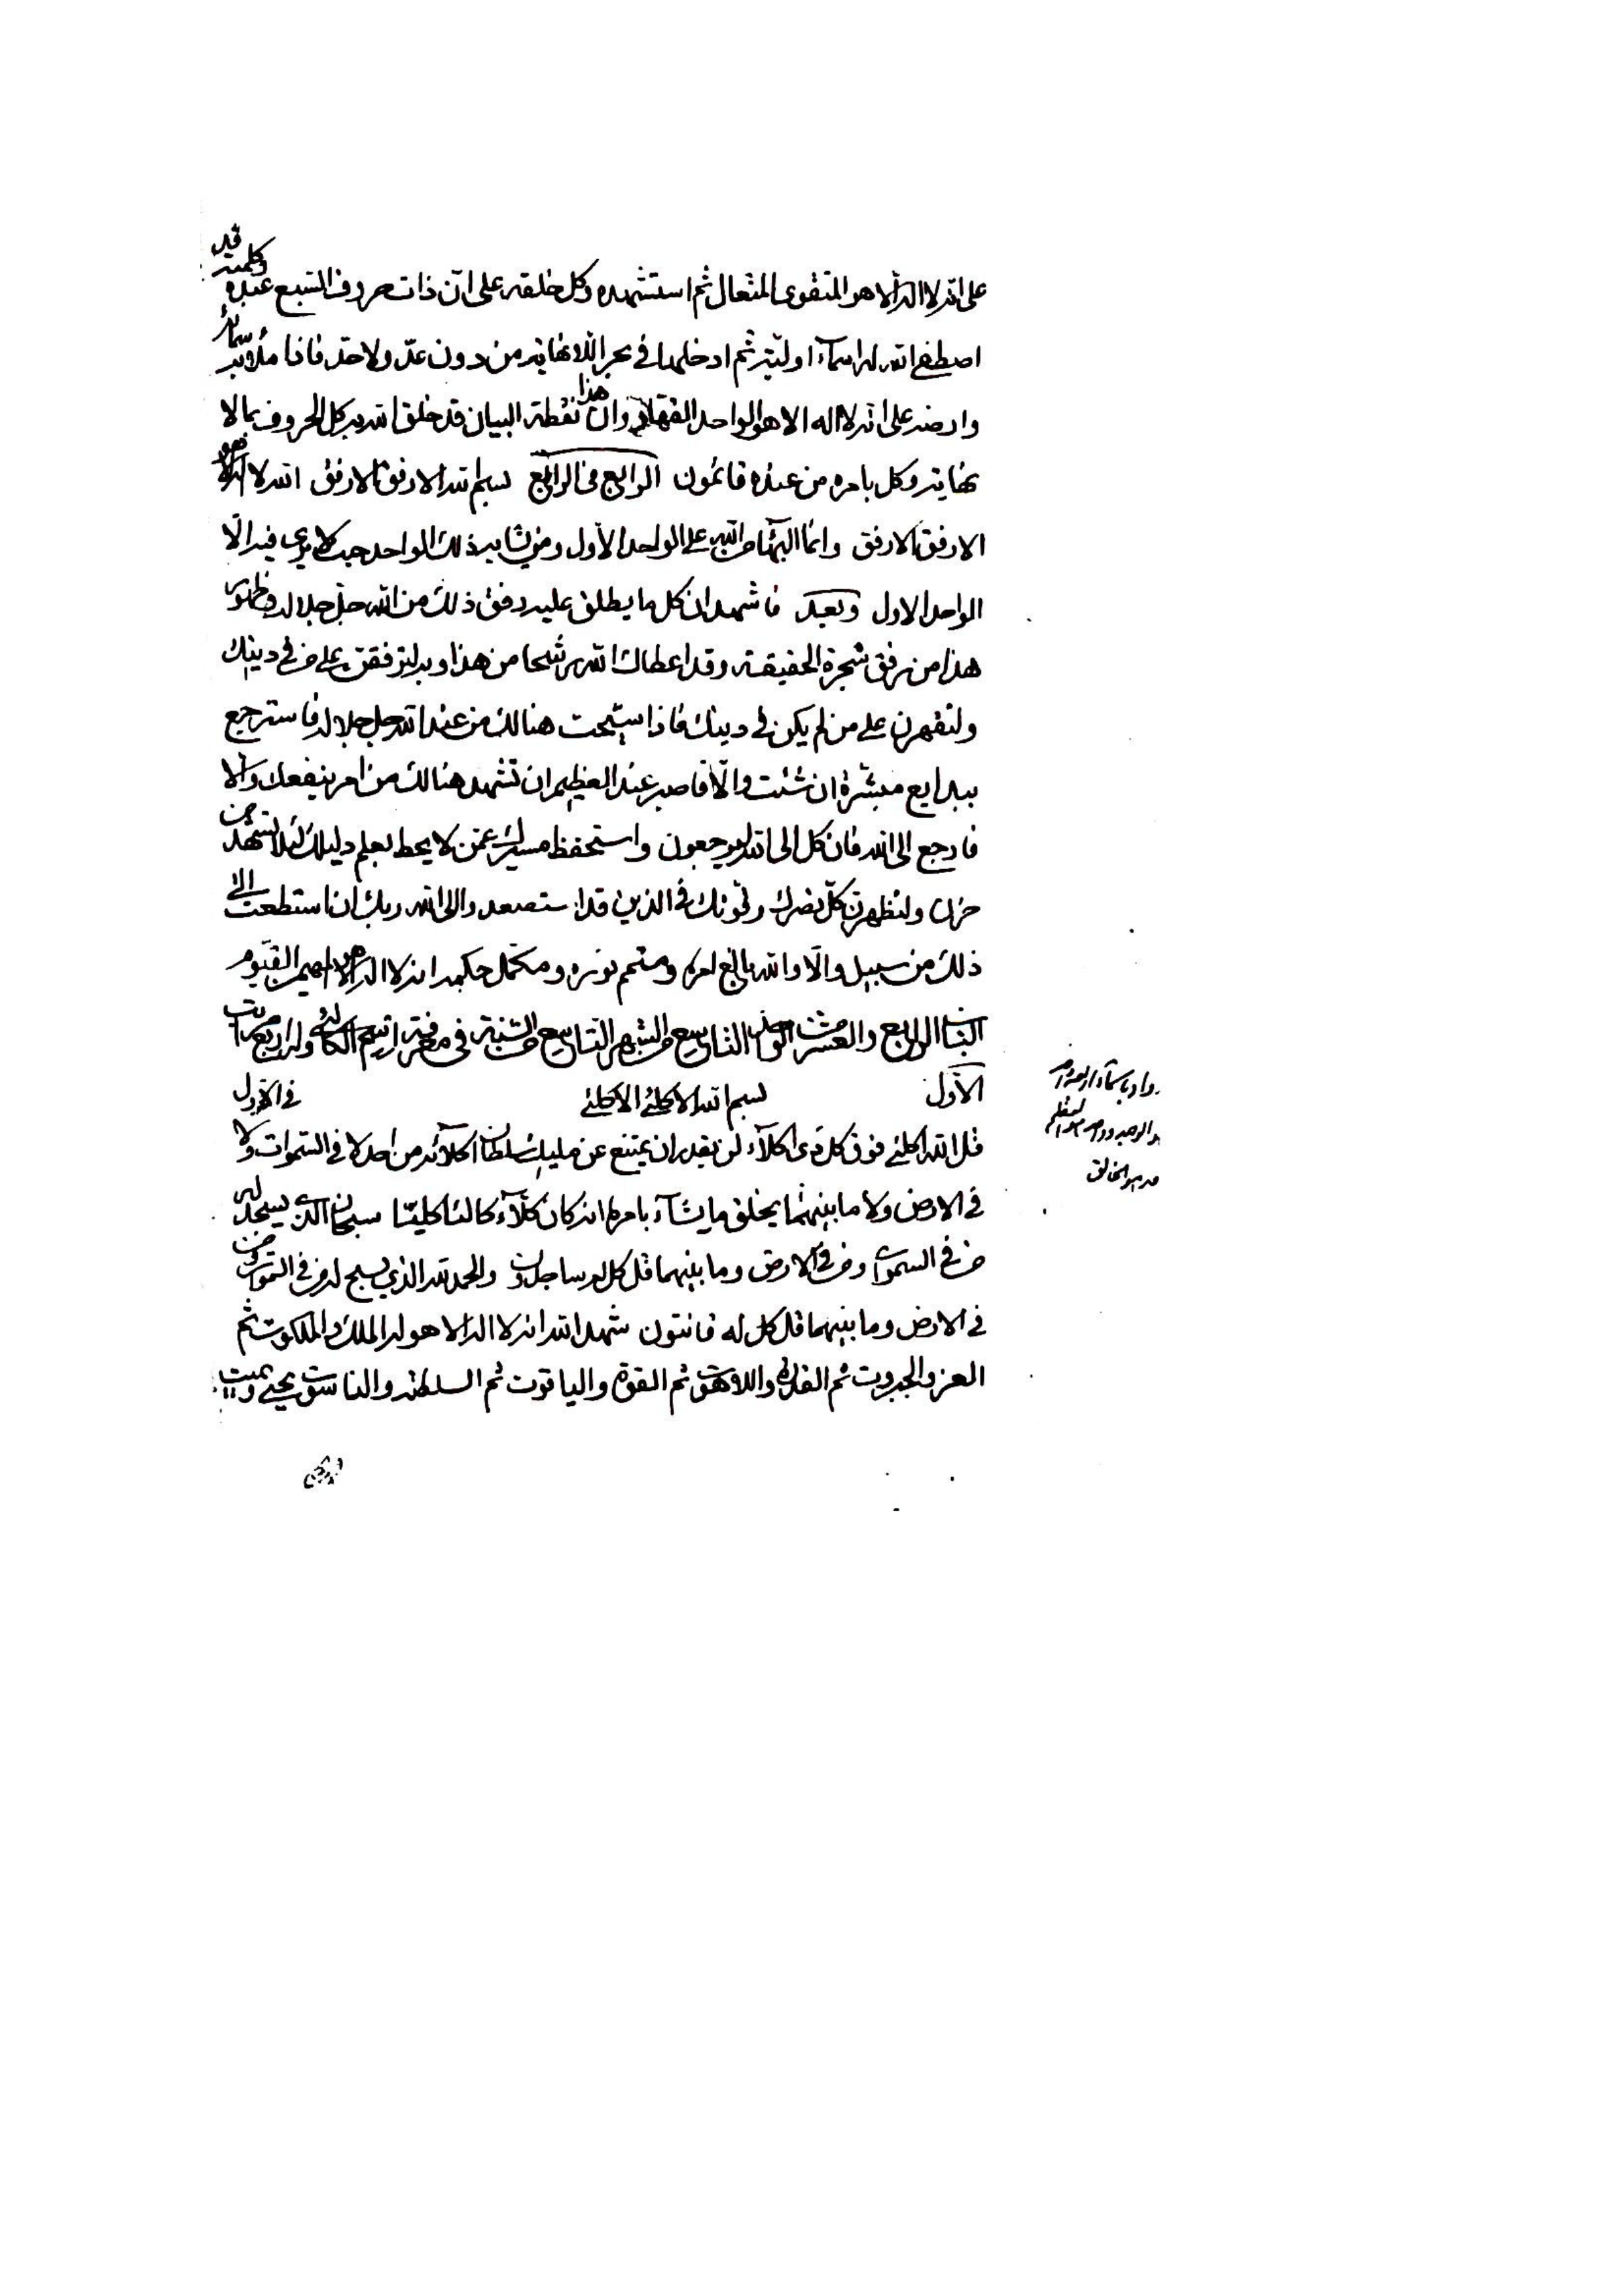 على انه لا اله الا هو المتقوى المتعال ثم استشهده وكل خلقه على ان ذات حروف السبع عبده وكلمته قد
اصطفى الله له اسماء اولية ثم ادخلها في بحر اللانهاية من دون عد ولا حد فاذا ملأ به سمائه
وارضه على انه لا اله الا هو الواحد القهار وان هذا نقطة البيان قد خلق الله به كل الحروف بما لا
نهاية وكل بامره من عنده قائمون الرابع في الرابع بسم الله الارفق الارفق الله لا اله الا هو
الارفق الارفق وانما البهاء من الله على الواحد الاول ومن شابه ذلك الواحد حيث لا يرى فيه الا
الواحد الاول وبعد فاشهد ان كل ما يطلق عليه رفق ذلك من الله جل جلاله وظهور
هذا من رفق شجرة الحقيقة وقد اعطاك الله رشحا من هذا وبه لترفقن على من في دينك
ولتقهرن على من لم يكن في دينك فاذا هنالك من عند الله جل جلاله فاسترجع
ببدايع مبشرة ان شئت والا فاصبر عند العظيم ان تشهد هنالك من امر ينفعك والا
فارجع الى الله فان كل الى الله ليرجعون واستحفظ عمن لا يحط بعلم دليلك لئلا تشهد من
حزن ولتظهرن كل نصرك في الذين قد استصعدوا الى الله ربك ان استطعت الى
ذلك من سبيل والا والله بالغ امره ومتمم نوره ومكمل حكمه انه لا اله الا هو المهيمن القيوم
الباب الرابع والعشر من الواحد التاسع من الشهر التاسع من السنة في معرفة اسم الكالئ وله اربع مراتب
الاول بسم الله الاكلئ الاكلئ في الاول
قل الله اكلئ فوق كل ذي اكلاء لن يقدر ان يمتنع عن مليك سلطان اكلائه من احد لا في السموات ولا
في الارض ولا ما بينهما يخلق ما يشاء بامره انه كان كلاء كالئا كليئا سبحان الذي يسجد له
من في السموات ومن في الارض وما بينهما قل كل له ساجدون والحمد لله الذي يسبح له من في السموات ومن
في الارض وما بينهما قل كل له قانتون شهد الله انه لا اله الا هو له الملك والملكوت ثم
العز والجبروت ثم القدرة واللاهوت ثم القوة والياقوت ثم السلطنة والناسوت يحيي ويميت